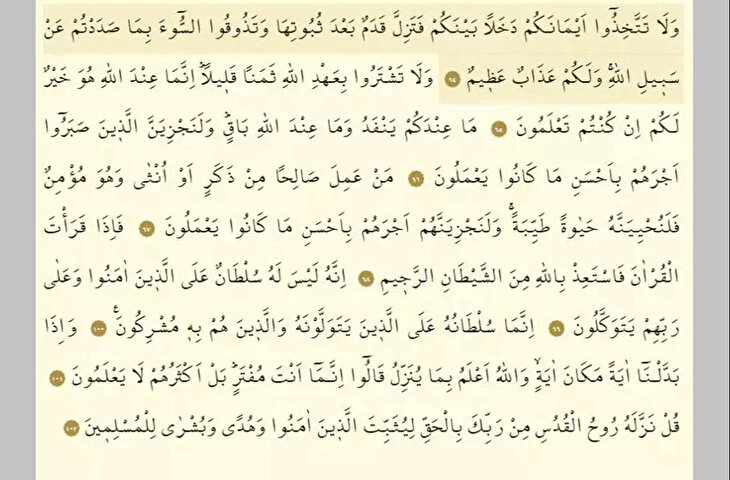 وَلَا تَتَّخِذُٓوا اَيْمَانَكُمْ دَخَلًا بَيْنَكُمْ فَتَزِلَّ قَدَمٌ بَعْدَ ثُبُوتِهَا وَتَذُوقُوا السُّٓوءَ بِمَا صَدَدْتُمْ عَنْ
سَب۪يلِ اللّٰهِۚ وَلَكُمْ عَذَابٌ عَظ۪يمٌ ﴿٩٤﴾ وَلَا تَشْتَرُوا بِعَهْدِ اللّٰهِ ثَمَنًا قَل۪يلًاۜ اِنَّمَا عِنْدَ اللّٰهِ هُوَ خَيْرٌ
لَكُمْ اِنْ كُنْتُمْ تَعْلَمُونَ ﴿٩٥﴾ مَا عِنْدَكُمْ يَنْفَدُ وَمَا عِنْدَ اللّٰهِ بَاقٍۜ وَلَنَجْزِيَنَّ الَّذ۪ينَ صَبَرُٓوا
اَجْرَهُمْ بِاَحْسَنِ مَا كَانُوا يَعْمَلُونَ ﴿٩٦﴾ مَنْ عَمِلَ صَالِحًا مِنْ ذَكَرٍ اَوْ اُنْثٰى وَهُوَ مُؤْمِنٌ
فَلَنُحْيِيَنَّهُ حَيٰوةً طَيِّبَةًۚ وَلَنَجْزِيَنَّهُمْ اَجْرَهُمْ بِاَحْسَنِ مَا كَانُوا يَعْمَلُونَ ﴿٩٧﴾ فَاِذَا قَرَأْتَ
الْقُرْاٰنَ فَاسْتَعِذْ بِاللّٰهِ مِنَ الشَّيْطَانِ الرَّج۪يمِ ﴿٩٨﴾ اِنَّهُ لَيْسَ لَهُ سُلْطَانٌ عَلَى الَّذ۪ينَ اٰمَنُوا وَعَلٰى
رَبِّهِمْ يَتَوَكَّلُونَ ﴿٩٩﴾ اِنَّمَا سُلْطَانُهُ عَلَى الَّذ۪ينَ يَتَوَلَّوْنَهُ وَالَّذ۪ينَ هُمْ بِه۪ مُشْرِكُونَ۟ ﴿١٠٠﴾ وَاِذَا
بَدَّلْنَٓا اٰيَةً مَكَانَ اٰيَةٍۙ وَاللّٰهُ اَعْلَمُ بِمَا يُنَزِّلُ قَالُٓوا اِنَّمَٓا اَنْتَ مُفْتَرٍۜ بَلْ اَكْثَرُهُمْ لَا يَعْلَمُونَ ﴿١٠١﴾
قُلْ نَزَّلَهُ رُوحُ الْقُدُسِ مِنْ رَبِّكَ بِالْحَقِّ لِيُثَبِّتَ الَّذ۪ينَ اٰمَنُوا وَهُدًى وَبُشْرٰى لِلْمُسْلِم۪ينَ ﴿١٠٢﴾